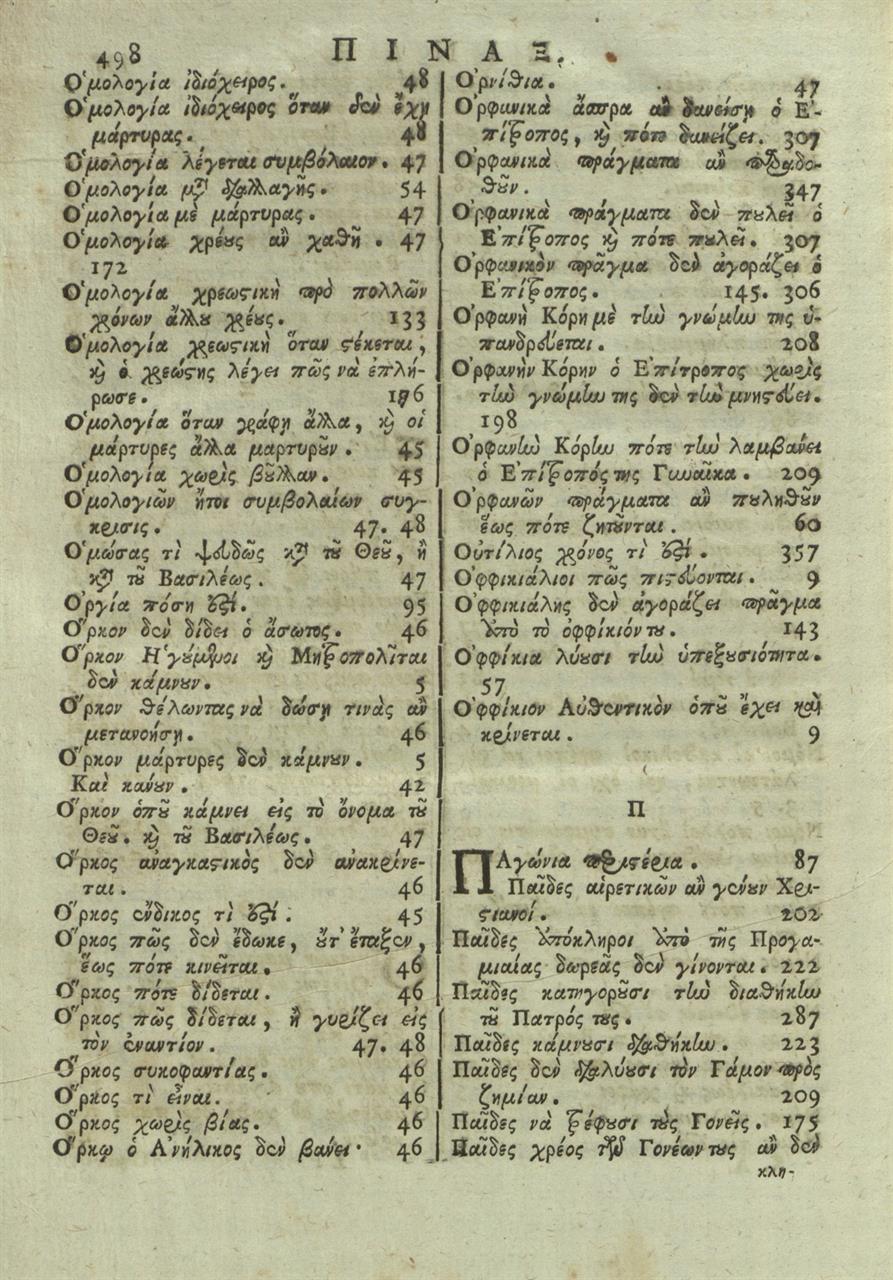 498 ΠΙΝΑΞ.
Ὁμολογία ἰδιόχειρος. 48
Ὁμολογία ἰδιόχειρος ὅταν δὲν ἔχῃ
μάρτυρας. 48
Ὁμολογία λέγεται συμβόλαιον. 47
Ὁμολογία μετὰ διαλλαγῆς. 54
Ὁμολογία μὲ μάρτυρας. 47
Ὁμολογία χρέους ἂν χαθῇ. 47
172
Ὁμολογία χρεωστικὴ πρὸ πολλῶν
χρόνων ἄλλου χρέους. 133
Ὁμολογία χρεωστικὴ ὅταν στέκεται,
καὶ ὁ χρεώστης λέγει πῶς νὰ ἐπλή-
ρωσε. 196
Ὁμολογία ὅταν γράφῃ ἄλλα, καὶ οἱ
μάρτυρες ἄλλα μαρτυροῦν. 45
Ὁμολογία χωρὶς βοῦλλαν. 45
Ὁμολογιῶν ἤτοι συμβολαίων συγ-
κρισις. 47. 48
Ὁμώσας τὶ ψευδῶς κατὰ τοῦ Θεοῦ, ἢ
κατὰ τοῦ Βασιλέως. 47
Ὀργία πόση ἐστί. 95
Ὅρκον δὲν δίδει ὁ ἄσωτος. 46
Ὅρκον Ἡγούμενοι καὶ Μητροπολῖται
δὲν κάμνουν. 5
Ὅρκον θέλωντας νὰ δώσῃ τινὰς ἂν
μετανοήσῃ. 46
Ὅρκον μάρτυρες δὲν κάμνουν. 5
Καὶ κανουν. 42
Ὅρκον ὁποῦ κάμνει εἰς τὸ ὄνομα τοῦ
Θεοῦ. καὶ τοῦ Βασιλέως. 47
Ὅρκος ἀναγκαστικὸς δὲν ἀνακρίνε-
ται. 46
Ὅρκος ἔνδικος τὶ ἐστί. 45
Ὅρκος πῶς δὲν ἔδωκε, οὔτ' ἔταξεν,
ἕως πότε κινεῖται. 46
Ὅρκος πότε δίδεται. 46
Ὅρκος πῶς δίδεται, ἢ γυρίζει εἰς
τὸν ἐναντίον. 47. 48
Ὅρκος συκοφαντίας. 46
Ὅρκος τὶ εἶναι. 46
Ὅρκος χωρὶς βίας. 46
Ὅρκῳ ὁ Ἀνήλικος δὲν βάνει· 46
Ὀρνίθια. 47
Ὀρφανικὰ ἄσπρα ἂν δανείσῃ ὁ Ἐ-
πίτροπος, καὶ πότε δανείζει. 307
Ὀρφανικὰ πράγματα ἂν παραδο-
θοῦν. 347
Ὀρφανικὰ πράγματα δὲν πουλεῖ ὁ
Ἐπίτροπος καὶ πότε πουλεῖ. 307
Ὀρφανικὸν πρᾶγμα δὲν ἀγοράζει ὁ
Ἐπίτροπος. 145. 306
Ὀρφανὴ Κόρη μὲ τὴν γνώμην της ὑ-
πανδρεύεται. 208
Ὀρφανὴν Κόρην ὁ Ἐπίτροπος χωρὶς
τὴν γνώμην της δὲν τὴν μνηστεύει.
198
Ὀρφανὴν Κόρην πότε τὴν λαμβάνει
ὁ Ἐπίτροπός της Γυναῖκα. 209
Ὀρφανῶν πράγματα ἂν πουληθοῦν
ἕως πότε ζητοῦνται. 60
Οὐτίλιος χρόνος τὶ ἐστί. 357
Ὀφφικιάλιοι πῶς πιστεύονται. 9
Ὀφφικιάλης δὲν ἀγοράζει πρᾶγμα
ὑπὸ τὸ ὀφφίκιόν του. 143
Ὀφφίκια λύουσι τὴν ὑπεξουσιότητα.
57
Ὀφφίκιον Αὐθεντικὸν ὁποῦ ἔχει καὶ
κρίνεται. 9
Π
ΠΑγώνια περιστέρια. 87
Παῖδες αἱρετικῶν ἂν γένουν Χρι-
στιανοί. 202
Παῖδες ὑπόκληροι ὑπὸ τῆς Προγα-
μιαίας δωρεᾶς δὲν γίνονται. 222
Παῖδες κατηγοροῦσι τὴν διαθήκην
τοῦ Πατρός τους. 287
Παῖδες κάμνουσι διαθήκην. 223
Παῖδες δὲν διαλύουσι τὸν Γάμον πρὸς
ζημίαν. 209
Παῖδες νὰ τρέφουσι τοὺς Γονεῖς. 175
Παῖδες χρέος τῶν Γονέων τους ἂν δὲν
κλη-